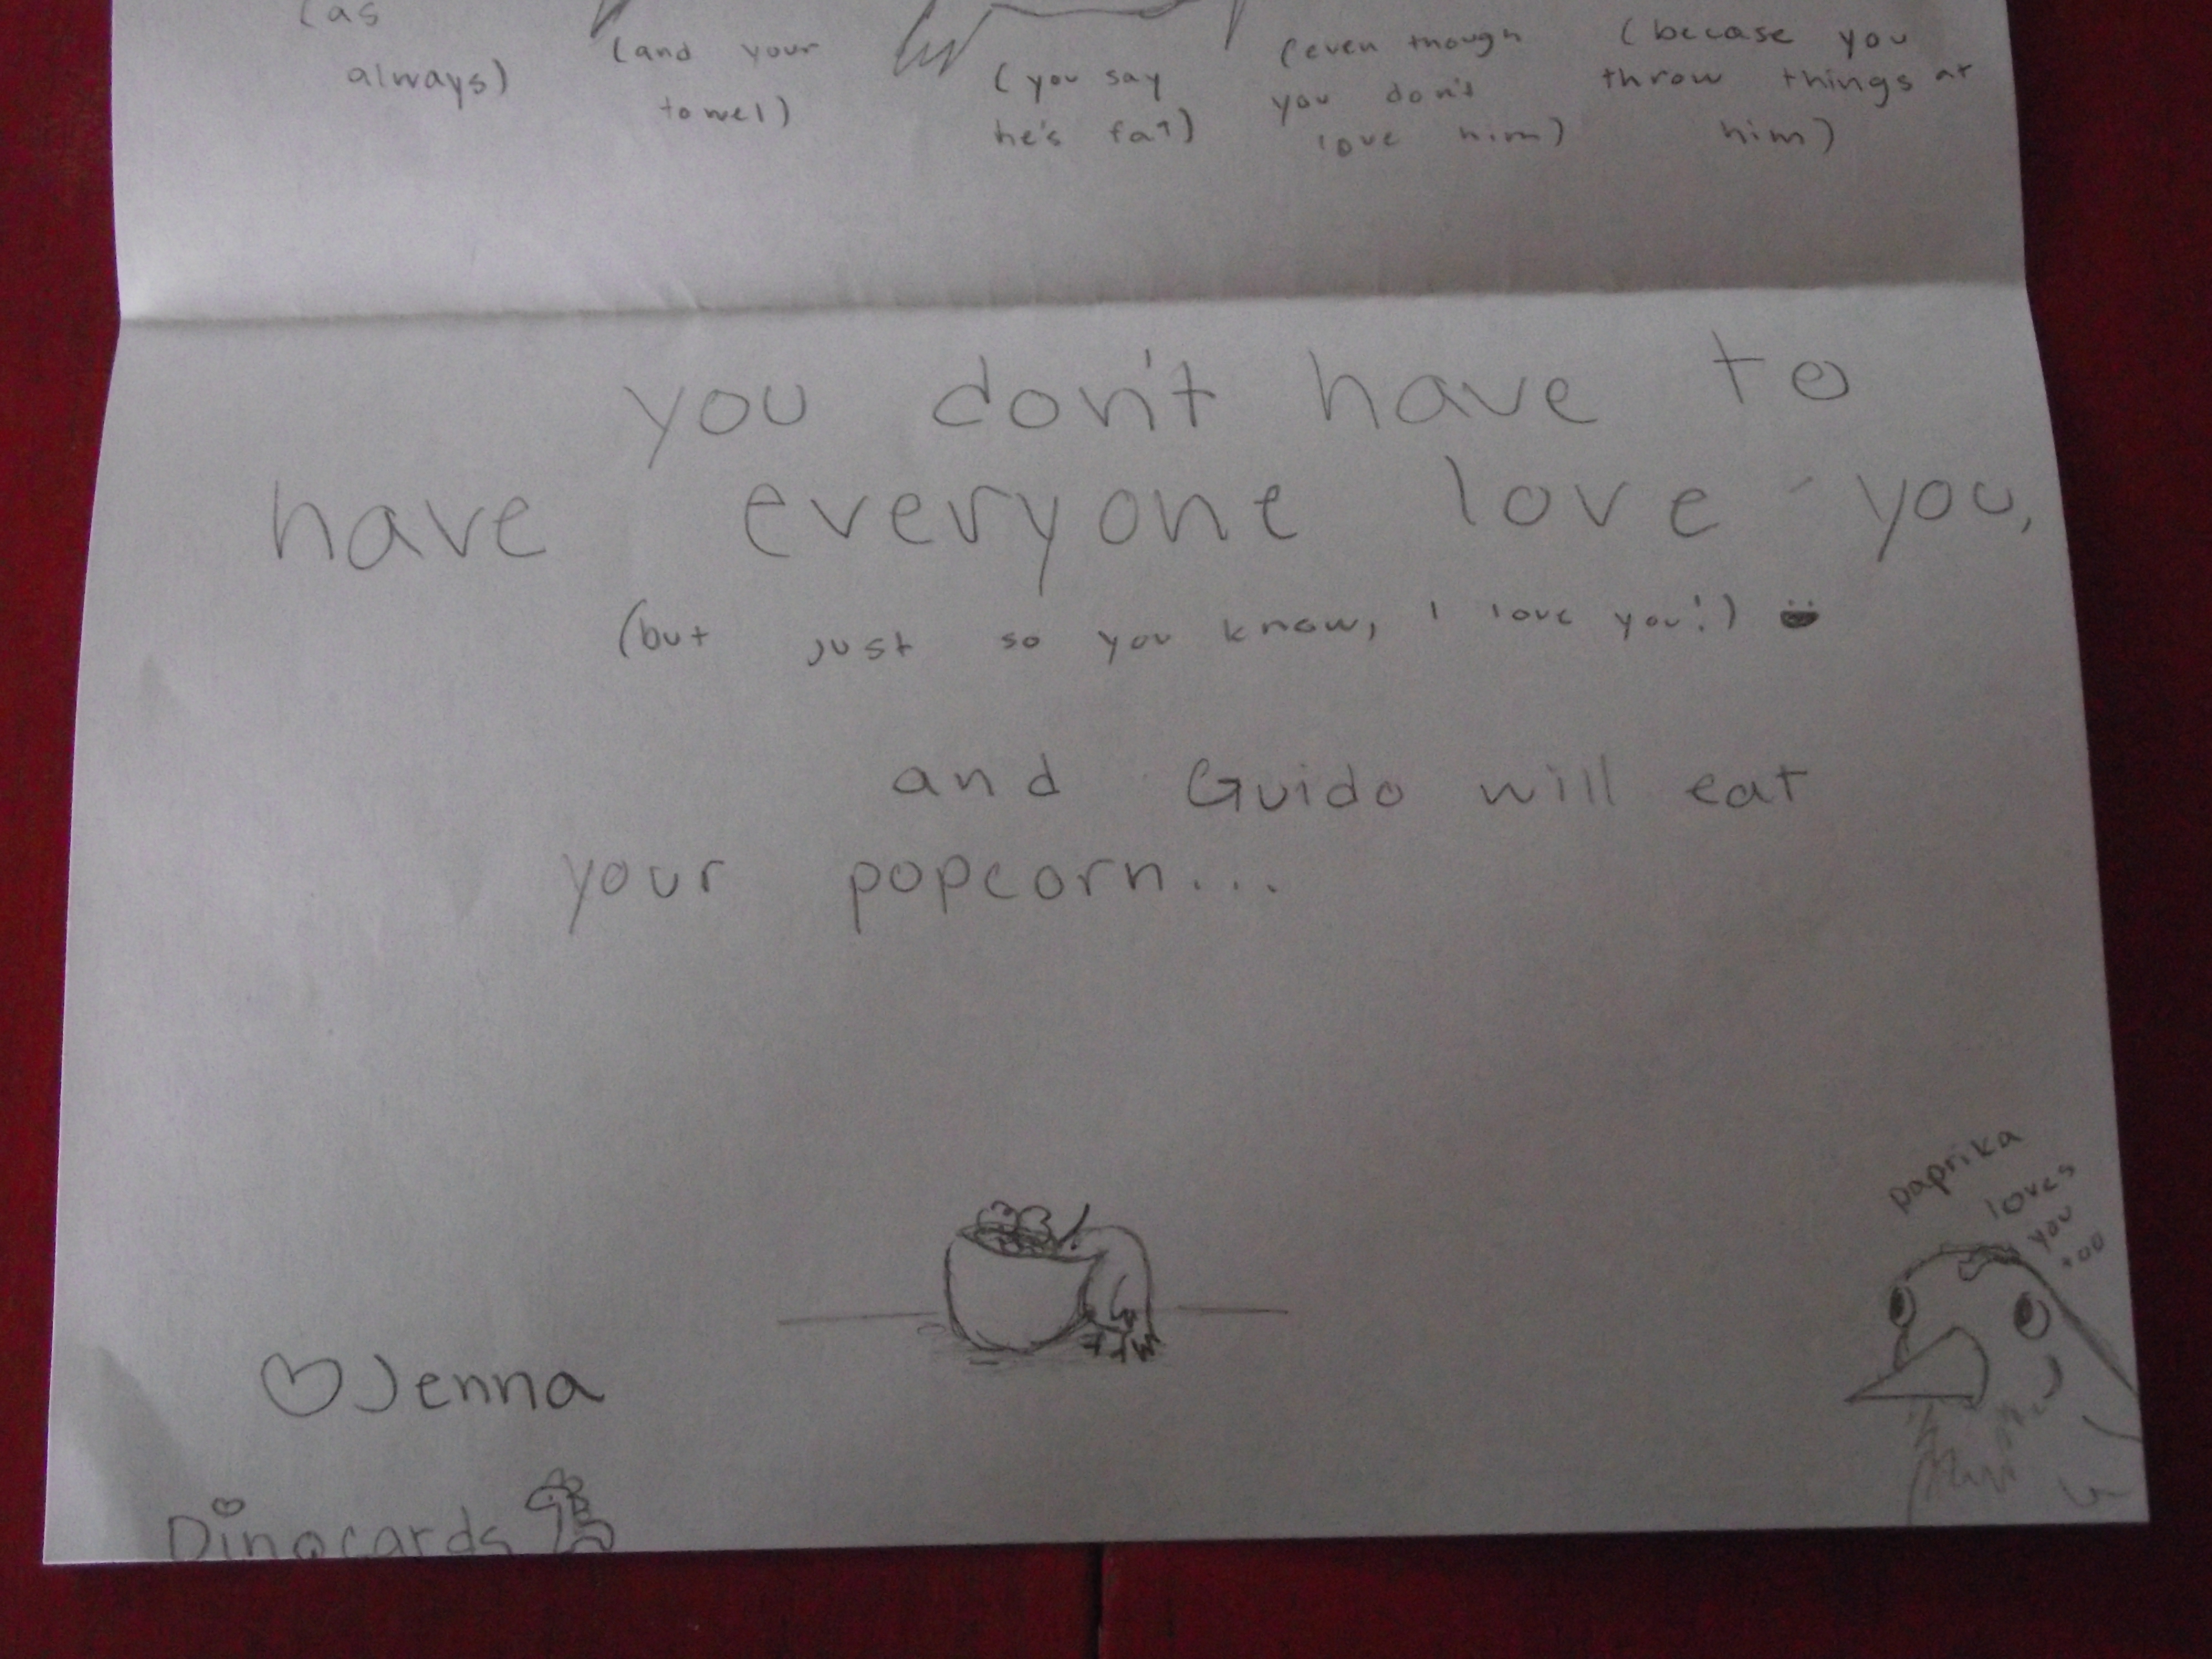 (as
always)
(and your
towel)
(you say
he's fat)
(even though
you don't
love him)
(becase you
throw things at
him)
you don't have to
have everyone love you,
(but just so you know, I love you!)
and Guido will eat
your popcorn...
paprika
loves
you
too
Jenna
Dinocards